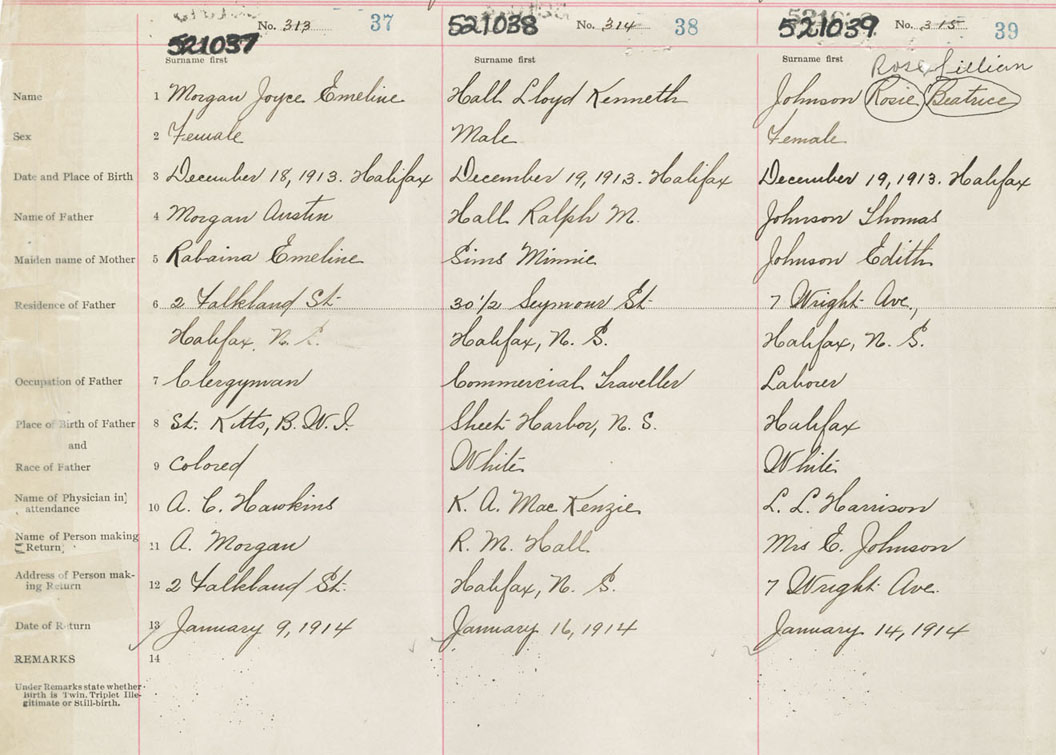 No. 313 37 521038 No. 314 38 521039 No. 315 39
521037
Surname first Surname first Surname first Rose Lillian
Name 1 Morgan Joyce Emeline Hall Lloyd Kenneth Johnson Rosie Beatrice
Sex 2 Female Male Female
Date and Place of Birth 3 December 18, 1913. Halifax December 19, 1913. Halifax December 19, 1913. Halifax
Name of Father 4 Morgan Austin Hall Ralph M. Johnson Thomas
Maiden name of Mother 5 Rabaina Emeline Sims Minnie Johnson Edith
Residence of Father 6 2 Falkland St. 30 1/2 Seymour St. 7 Wright Ave.,
Halifax, N. S. Halifax, N. S. Halifax, N. S.
Occupation of Father 7 Clergyman Commercial Traveller Laborer
Place of Birth of Father 8 St. Kitts, B. W. I. Sheet Harbor, N. S. Halifax
and
Race of Father 9 Colored White White
Name of Physician in attendance 10 A. C. Hawkins K. A. Mac Kenzie L. L. Harrison
Name of Person making Return 11 A. Morgan R. M. Hall Mrs E. Johnson
Address of Person mak-
ing Return 12 2 Falkland St. Halifax, N. S. 7 Wright Ave.
Date of Return 13 January 9, 1914 January 16, 1914 January 14, 1914
REMARKS 14
Under Remarks state whether
Birth is Twin, Triplet Ille-
gitimate or Still-birth.